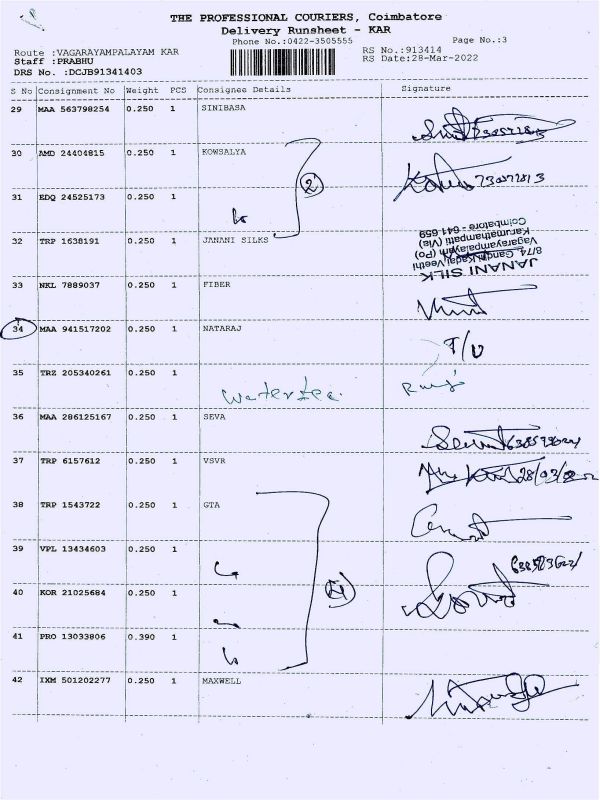 THE PROFESSIONAL COURIERS, Coimbatore
Delivery Runsheet - KAR
Phone No.:0422-3505555 Page No.:3
Route :VAGARAYAMPALAYAM KAR RS No.:913414
Staff :PRABHU RS Date:28-Mar-2022
DRS No. :DCJB91341403
S No Consignment No Weight PCS Consignee Details Signature
29 MAA 563798254 0.250 1 SINIBASA
30 AMD 24404815 0.250 1 KOWSALYA
2
31 EDQ 24525173 0.250 1
32 TRP 1638191 0.250 1 JANANI SILKS
JANANI SILK
8/74, Gandhi Kadai Veethi
Vagarayampalayam (Po)
Karumathampatti (Via)
Coimbatore - 641 659
33 NKL 7889037 0.250 1 FIBER
34 MAA 941517202 0.250 1 NATARAJ
35 TRZ 205340261 0.250 1
36 MAA 286125167 0.250 1 SEVA
37 TRP 6157612 0.250 1 VSVR
38 TRP 1543722 0.250 1 GTA
39 VPL 13434603 0.250 1
40 KOR 21025684 0.250 1
41 PRO 13033806 0.390 1
42 IXM 501202277 0.250 1 MAXWELL